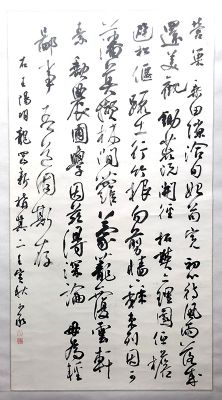 營茅乘田隙洽旬始苟完初心待風雨落成
還美觀鋤荒既開徑拓樊亦理園低檐
避松偃疏土行竹根勿剪墻下棘束列因可
藩莫擷林間蘿蒙籠覆雲軒
素缺農圃學因茲得深論毋為輕
鄙事吾道固斯存
右王陽明龍岡新構其二